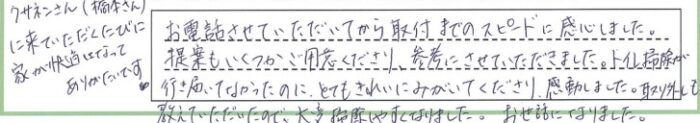 クサネンさん(橋本さん)
に来ていただくたびに
家が快適になって
ありがたいです
お電話させていただいてから取付までのスピードに感心しました。
提案もいくつかご用意くださり、参考にさせていただきました。トイレ掃除が
行き届いてなかったのに、とてもきれいにみがいてくださり、感動しました。取り外しも
教えていただいたので、大変掃除しやすくなりました。 お世話になりました。